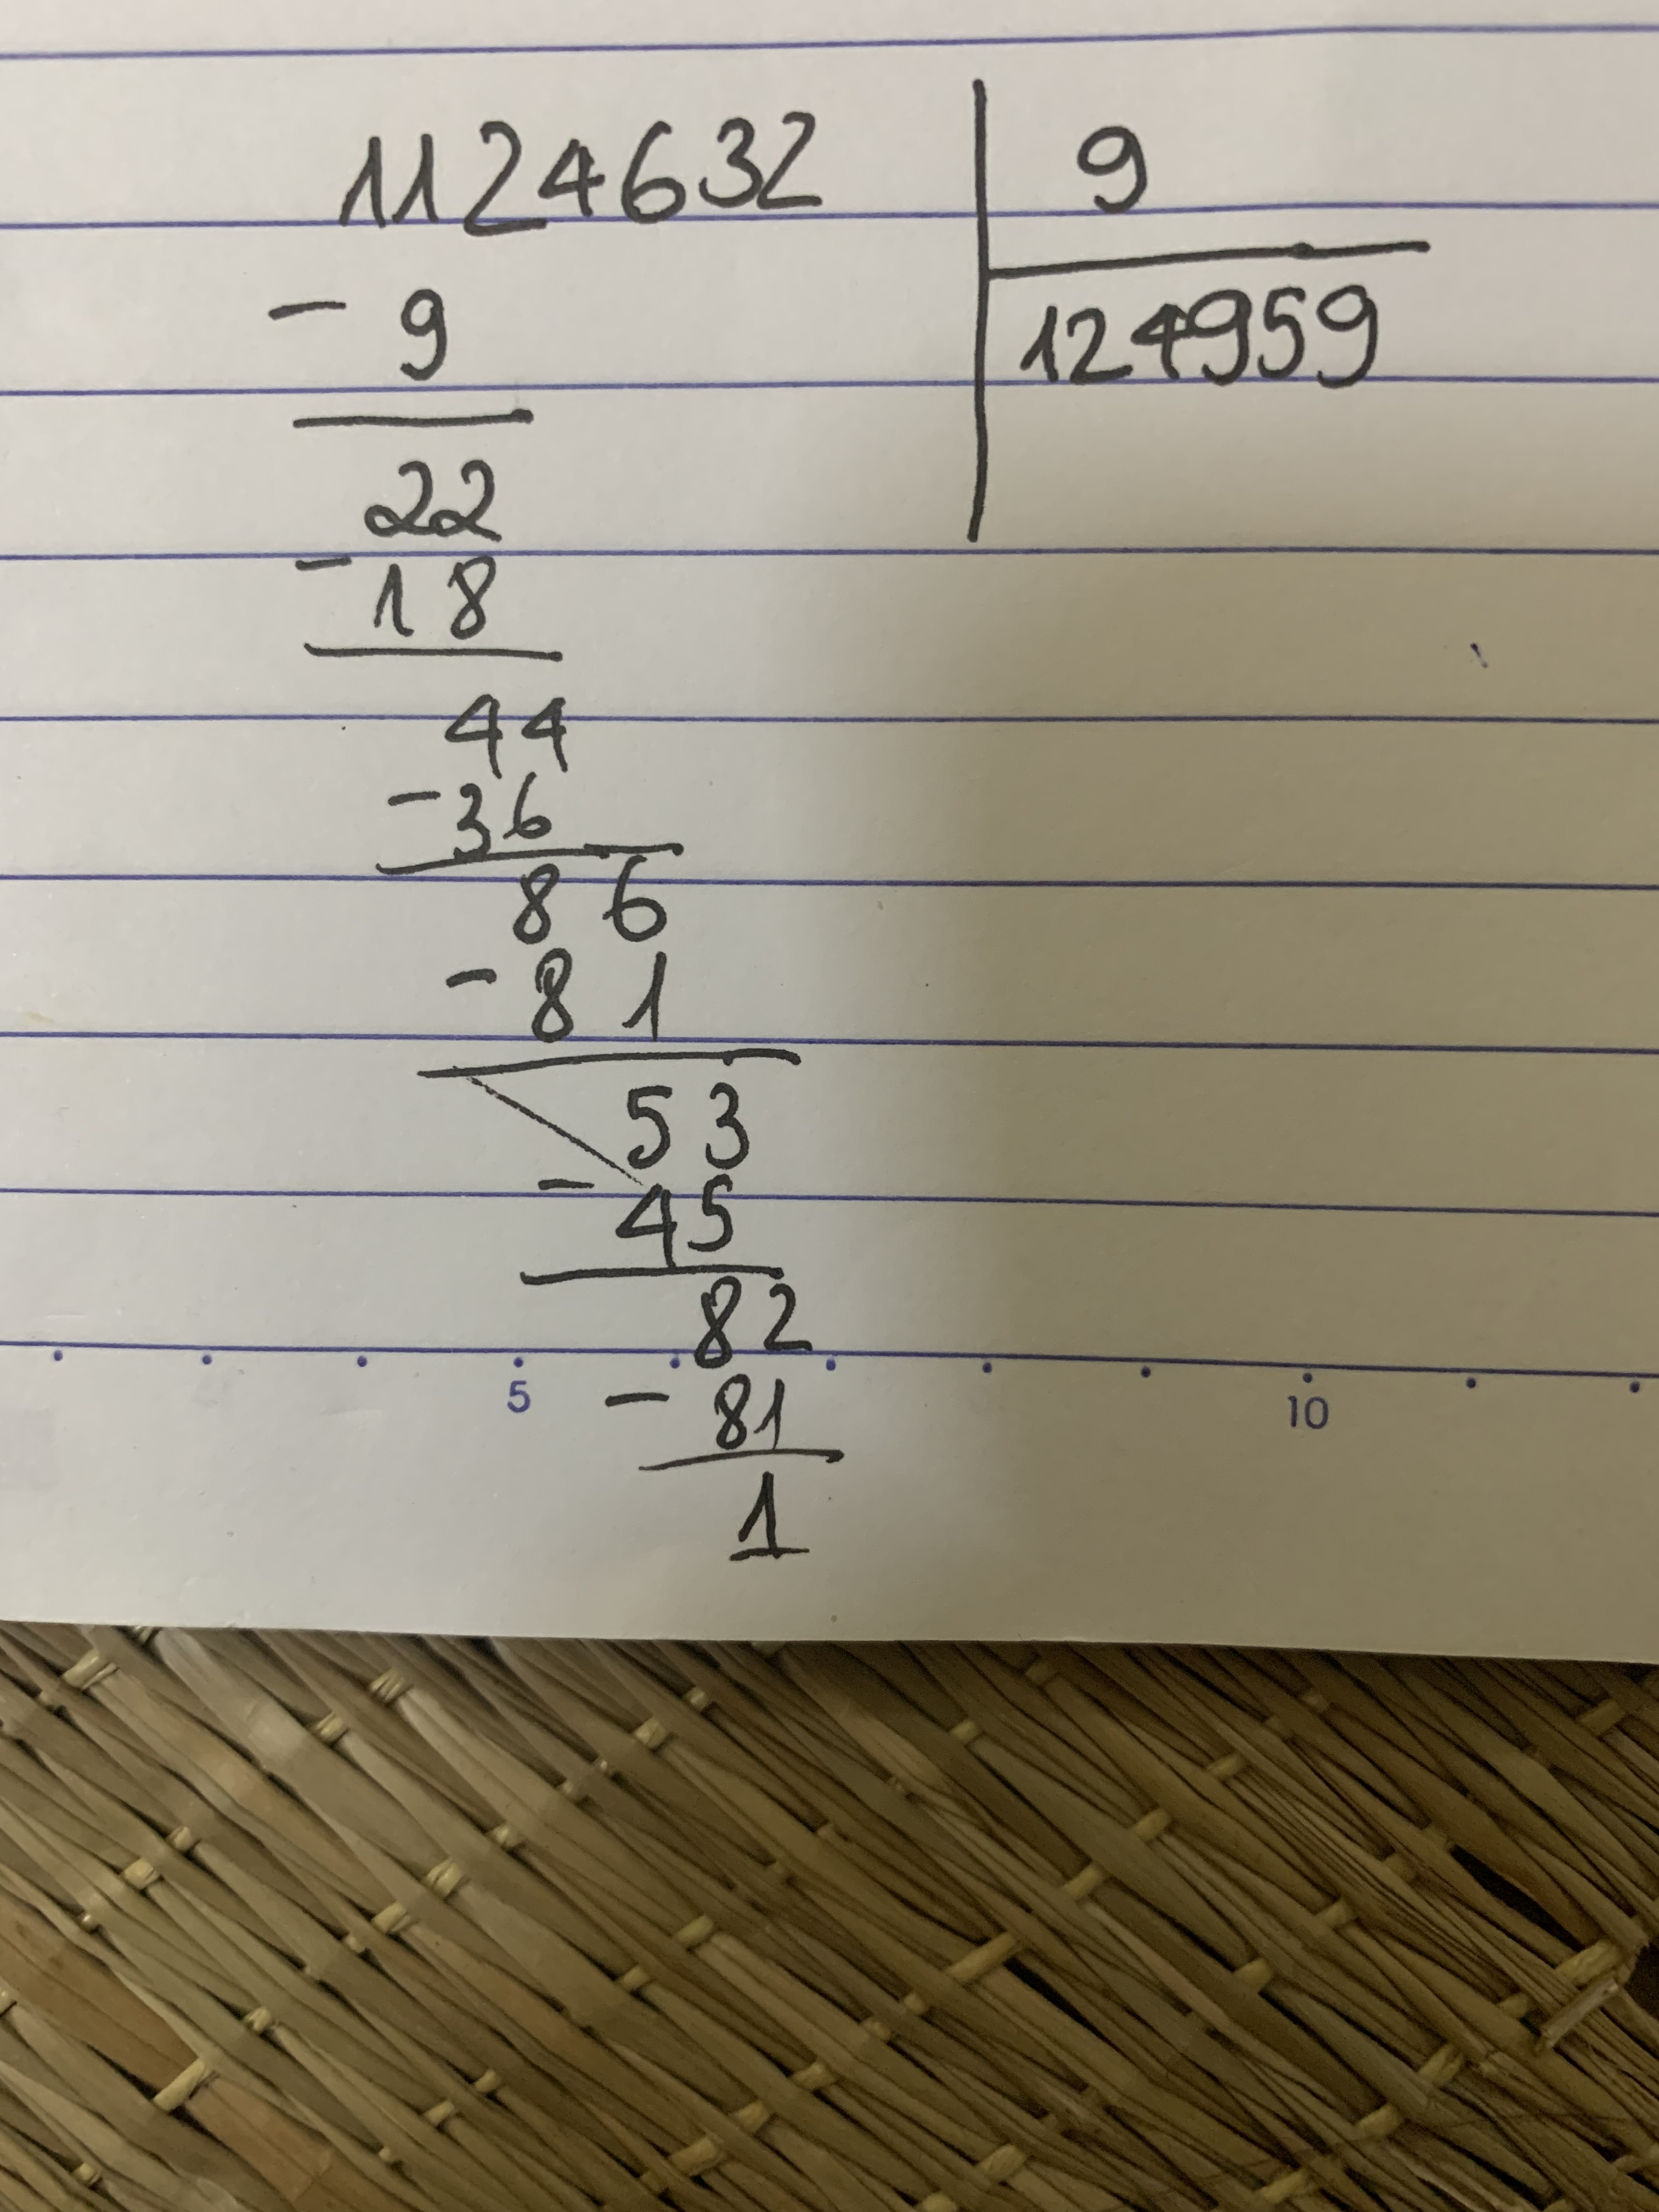 1124632 9
- 9 124959
22
- 18
44
- 36
86
- 81
53
- 45
82
5 10
- 81
1